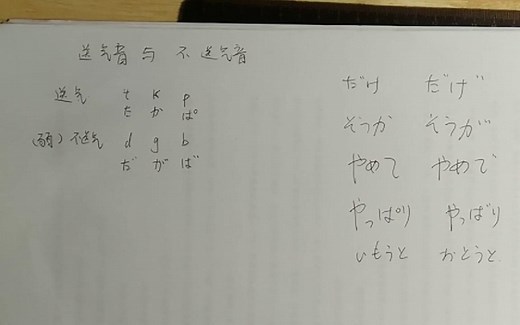 送气音与不送气音
送气 t k p
た か ぱ
(弱)不送气 d g b
だ が ば
だけ だげ
そうか そうが
やめて やめで
やっぱり やっばり
いもうと おとうと